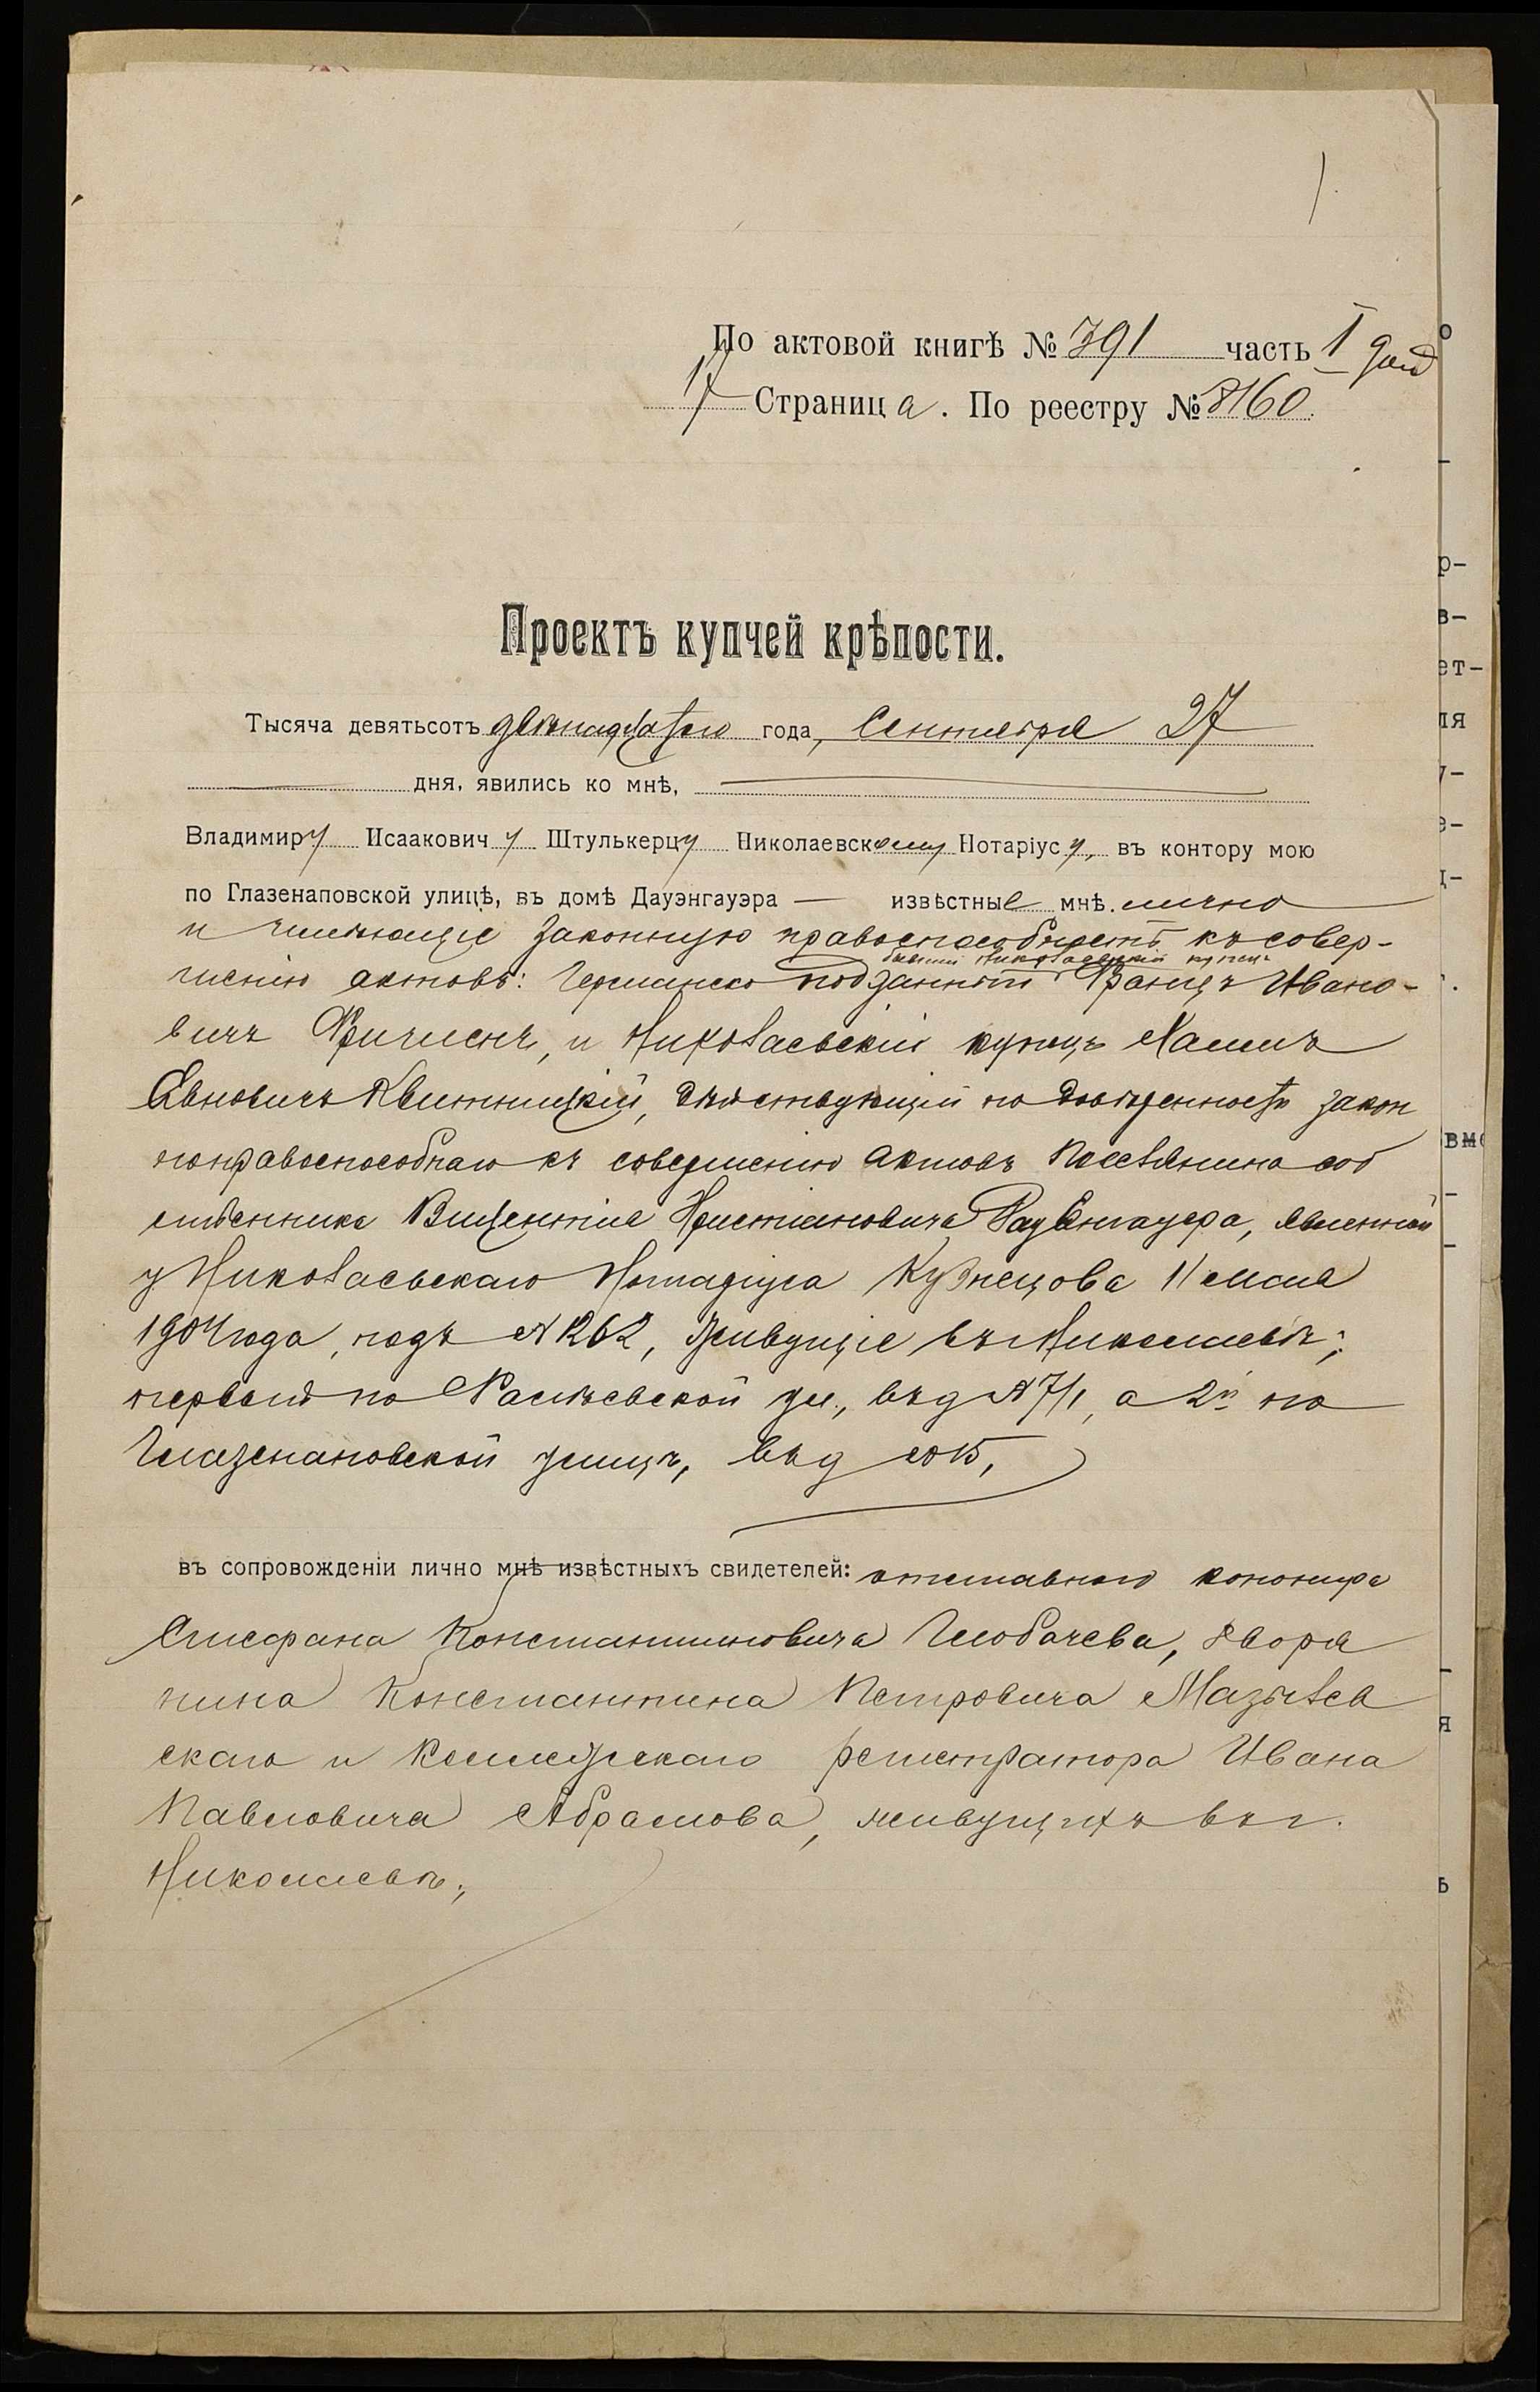 По актовой книгѣ № 391 часть I
17 Страница. По реестру № 8160.
Проектъ купчей крѣпости.
Тысяча девятьсотъ двѣнадцатаго года, Сентября 27
дня, явились ко мнѣ,
Владимиру Исааковичу Штулькерцу Николаевскому Нотаріусу, въ контору мою
по Глазенаповской улицѣ, въ домѣ Дауэнгауэра — извѣстные мнѣ лично
и имѣющіе законную правоспособность къ совер-
бывшій Николаевскій купецъ
шенію актовъ: Германско подданный Францъ Ивано-
вичъ Фришенъ, и Николаевскій купецъ
Евновичъ Квитницкій, дѣйствующій по довѣренности закон
ноправоспособнаго къ совершенію актовъ Поселянина соб
ственника Викентія Христіановича Дауэнгауера, явленной
у Николаевскаго Нотаріуса Кузнецова 11 мая
1904 года, подъ № 1262, живущіе въ Николаевѣ;
первый по ул., въ д № 7/1, а 2й по
Глазенаповской улицѣ, въ д № 15,
въ сопровожденіи лично мнѣ извѣстныхъ свидетелей: отставного канонира
Стефана Константиновича Глобачева, дворя
нина Константина Петровича
скаго и Коллежскаго регистратора Ивана
Павловича Абрамова, живущихъ въ г.
Николаевѣ;
о
-
р-
в-
ет-
ля
у-
е-
ц-
г.
вмс
-
-
-
я
ь